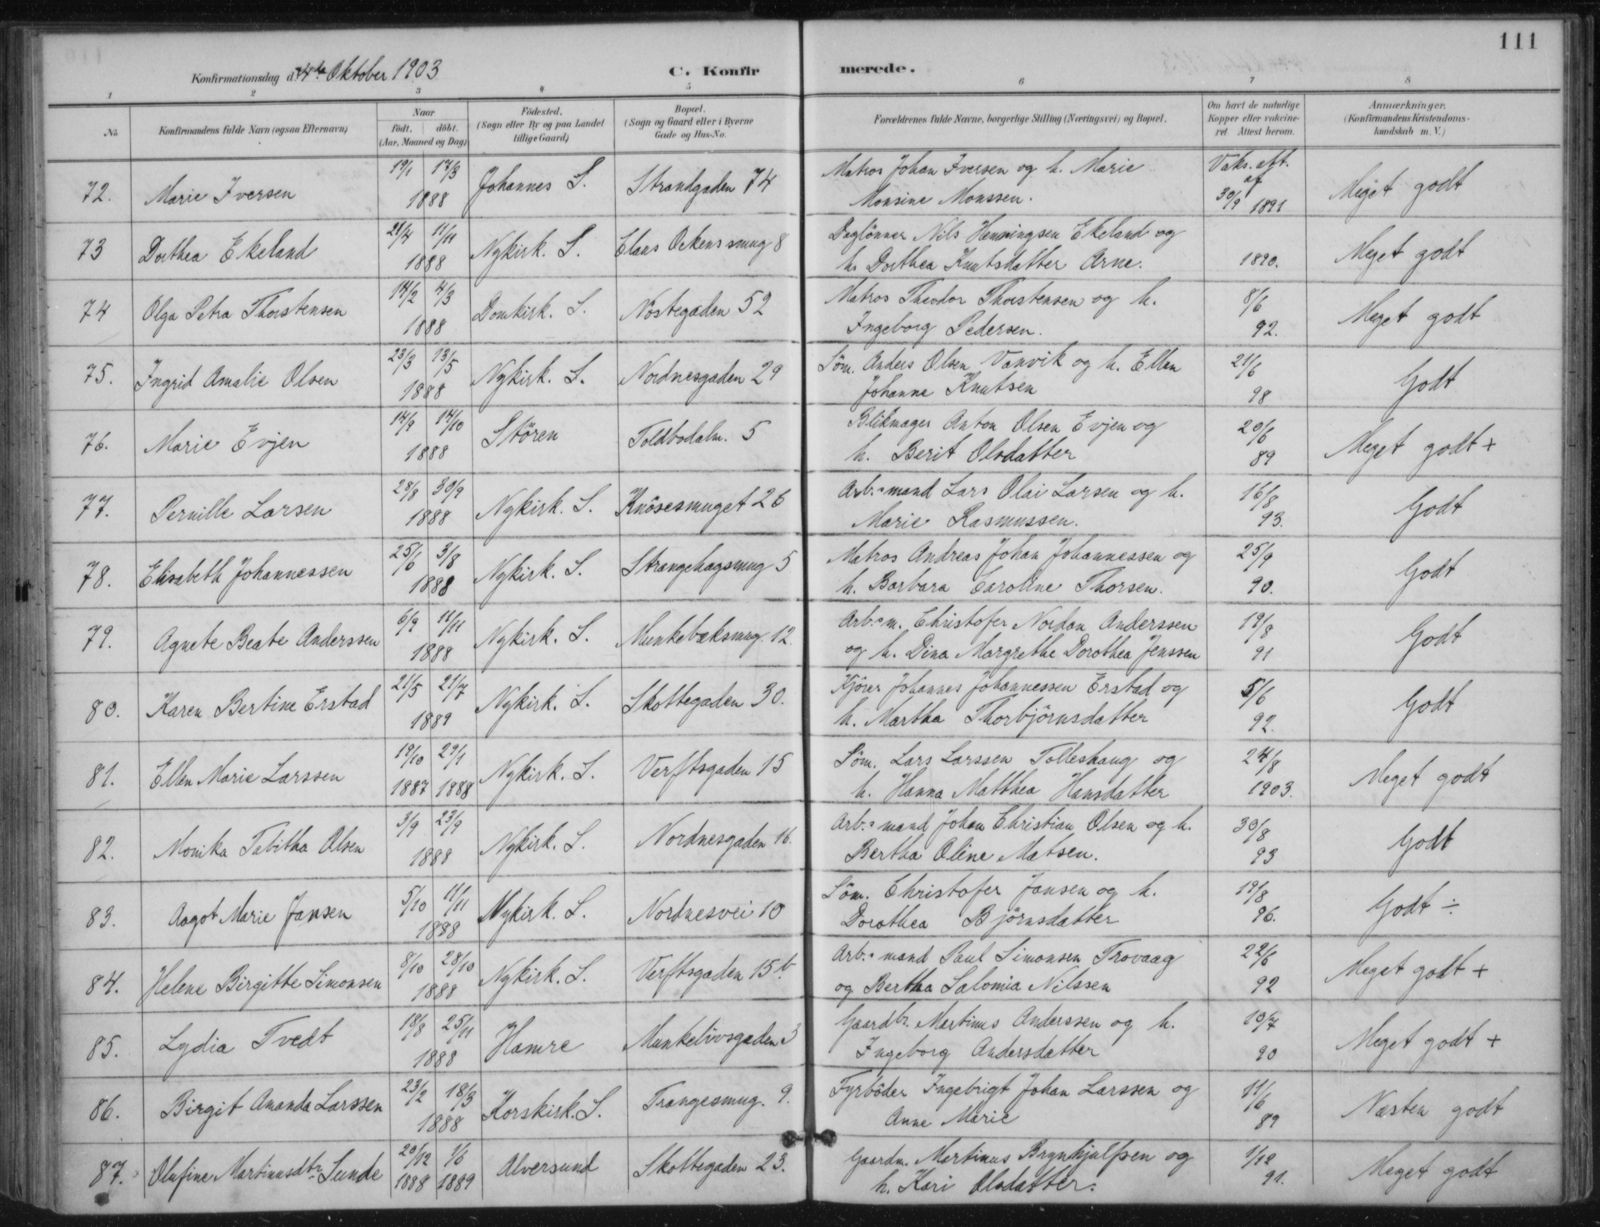 111
Konfirmationsdag d. 4de Oktober 1903
C. Konfirmerede.
1 2 3 4 5 6 7 8
No. Konfirmandens fulde Navn (ogsaa Efternavn) Naar født. døbt. (Aar, Maaned og Dag) Fødested. (Sogn eller By og paa Landet tillige Gaard) Bopæl. (Sogn og Gaard eller i Byerne Gade og Hus-No. Forældrenes fulde Navne, borgerlige Stilling (Næringsvei) og Bopæl. Om havt de naturlige Kopper eller vaccineret. Attest herom. Anmærkninger. (Konfirmandens Kristendomskundskab m. V.)
72. Marie Iversen 19/1 17/3 1888 Johannes S. Strandgaden 74 Matros Johan Iversen og h. Marie Monsine Monssen. Vaks. att. af 30/9 1891 Meget godt
73 Dorthea Ekeland 21/4 11/11 1888 Nykirk. S. Claus Ockens smug 8 Daglønner Nils Henningsen Ekeland og h. Dorthea Knutsdatter Arne. 1890. Meget godt
74 Olga Petra Thorstensen 14/2 4/3 1888 Domkirk. S. Nøstegaden 52 Matros Theodor Thorstensen og h. Ingeborg Pedersen. 8/6 92. Meget godt
75. Ingrid Amalie Olsen 23/3 13/5 1888 Nykirk. S. Nordnesgaden 29 Søm. Anders Olsen Vanvik og h. Ellen Johanne Knutsen 21/6 98 Godt
76. Marie Evjen 14/9 14/10 1888 Støren Toldbodalm. 5 Blikmager Anton Olsen Evjen og h. Berit Olsdatter 20/6 89 Meget godt +
77. Pernille Larsen 28/8 30/9 1888 Nykirk. S. Knøsesmuget 26 Arb.mand Lars Olai Larsen og h. Marie Rasmussen. 16/8 93. Godt
78. Elisabeth Johannessen 25/6 3/8 1888 Nykirk. S. Strangehagsmug 5 Matros Andreas Johan Johannessen og h. Barbara Caroline Thorsen. 25/9 90. Godt
79. Agnete Beate Anderssen 6/9 11/11 1888 Nykirk. S. Munkebæksmug. 12 Arb.m. Christofer Nordan Anderssen og h. Dina Margrethe Dorothea Jenssen 19/8 91 Godt
80. Karen Bertine Erstad 21/5 21/7 1889 Nykirk. S. Skottegaden 30. Kjører Johannes Johannessen Erstad og h. Martha Thorbjørnsdatter 5/6 92. Godt
81. Ellen Marie Larssen 19/10 1887 29/1 1888 Nykirk. S. Verftsgaden 15 Søm. Lars Larssen Tolleshaug og h. Hanna Matthea Hansdatter 24/8 1903. Meget godt
82. Monika Tabitha Olsen 3/9 23/9 1888 Nykirk. S. Nordnesgaden 16. Arb.mand Johan Christian Olsen og h. Bertha Oline Matsen. 30/8 93 Godt
83. Aagot Marie Jansen 5/10 11/11 1888 Nykirk. S. Nordnesvei 10 Søm. Christofer Jansen og h. Dorothea Bjørnsdatter 19/8 96. Godt ÷
84. Helene Birgitte Simonsen 8/10 28/10 1888 Nykirk. S. Verftsgaden 15 b Arb.mand Paul Simonsen Trovaag og Bertha Salomia Nilssen 22/6 92 Meget godt +
85. Lydia Tvedt 18/8 25/11 1888 Hamre Munkelivsgaden 3 Gaardbr. Martinus Anderssen og h. Ingeborg Andersdatter 10/7 90 Meget godt +
86. Birgit Amanda Larssen 23/2 18/3 1888 Korskirk. S. Trangesmug. 9. Fyrbøder Ingebrigt Johan Larssen og Anne Marie 11/6 89 Næsten godt
87. Olufine Martinusdtr. Sunde 20/12 1888 1/6 1889 Alversund Skottegaden 23. Gaardm. Martinus Brynhjulfsen og h. Kari Olsdatter. 1/12 91. Meget godt